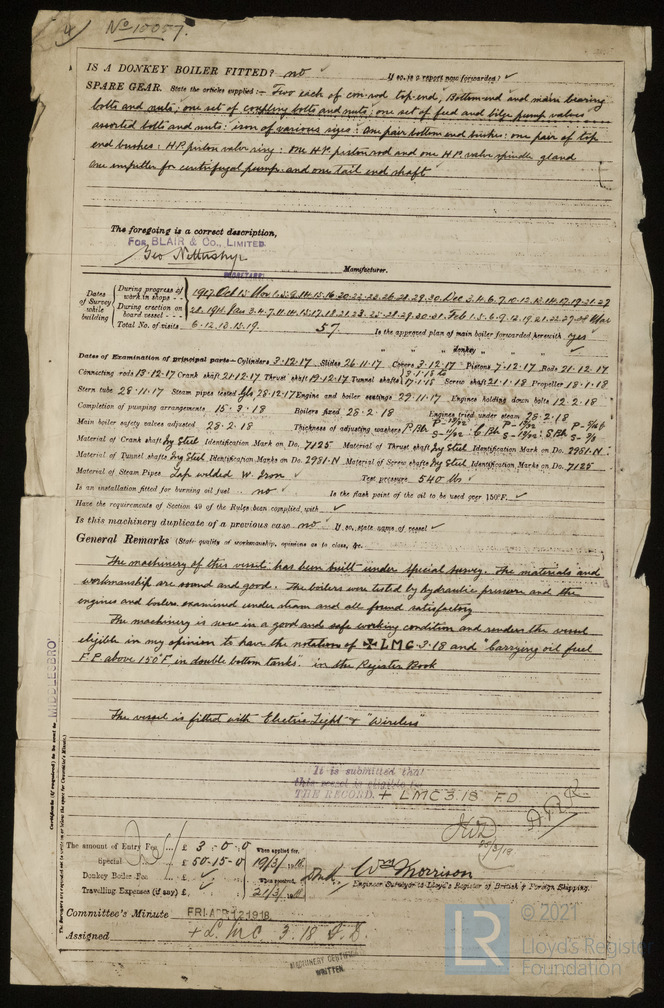 4 No 15057.
IS A DONKEY BOILER FITTED? no If so, is a report now forwarded?
SPARE GEAR. State the articles supplied:— Two each of con-rod top end, Bottom end and main bearing
bolts and nuts; one set of coupling bolts and nuts; one set of feed and bilge pump valves
assorted bolts and nuts: iron of various sizes: One pair bottom end bushes: one pair of top
end bushes: H.P. piston valve ring: One H.P. piston rod and one H.P. valve spindle gland
One impeller for centrifugal pump. and one tail end shaft
The foregoing is a correct description,
FOR BLAIR & CO., LIMITED.
Geo
SECRETARY. Manufacturer.
Dates of Survey while building
During progress of work in shops - - 1917. Oct 15 Nov
During erection on board vessel - - -
Total No. of visits 6. 12. 13. 15. 19. 57. Is the approved plan of main boiler forwarded herewith yes
" " " donkey " " "
Dates of Examination of principal parts—Cylinders 3.12.17 Slides 26.11.17 Covers 3.12.17 Pistons 7.12.17 Rods 21.12.17
Connecting rods 13.12.17 Crank shaft 21.12.17 Thrust shaft 19.12.17 Tunnel shafts 17.1.18 Screw shaft 21.1.18 Propeller 18.1.18
Stern tube 28.11.17 Steam pipes tested 28.12.17 Engine and boiler seatings 29.11.17 Engines holding down bolts 12.2.18
Completion of pumping arrangements 15.3.18 Boilers fixed 28.2.18 Engines tried under steam 28.2.18
Main boiler safety valves adjusted 28.2.18 Thickness of adjusting washers
Material of Crank shaft Ing Steel Identification Mark on Do. 7125 Material of Thrust shaft Ing Steel Identification Mark on Do. 2981.N
Material of Tunnel shafts Ing Steel Identification Marks on Do. 2981.N Material of Screw shafts Ing Steel Identification Marks on Do. 7125
Material of Steam Pipes Lap welded W. Iron Test pressure 540 lbs
Is an installation fitted for burning oil fuel no Is the flash point of the oil to be used over 150°F.
Have the requirements of Section 49 of the Rules been complied with
Is this machinery duplicate of a previous case no If so, state name of vessel
General Remarks (State quality of workmanship, opinions as to class, &c.
The machinery of this vessel has been built under special survey. The materials and
workmanship are sound and good. The boilers were tested by hydraulic pressure and the
engines and boilers examined under steam and all found satisfactory
The machinery is now in a good and safe working condition and renders the vessel
eligible in my opinion to have the notation of ✠ LMC 3.18 and "Carrying oil fuel
F.P. above 150°F. in double bottom tanks" in the Register Book
The vessel is fitted with Electric Light & "Wireless"
It is submitted that
this vessel is eligible for
THE RECORD. + LMC 3.18 F.D
20/3/18
MIDDLESBRO'
The amount of Entry Fee ... £ 3 . 0 . 0 When applied for,
Special ... £ 50 . 15 . 0 19/3/18
Donkey Boiler Fee ... £ When received,
Travelling Expenses (if any) £ 21/3/18
Wm Morrison
Engineer Surveyor to Lloyd's Register of British & Foreign Shipping.
Committee's Minute FRI. APR. 12 1918
Assigned + L.M.C 3.18 F.D
MACHINERY CERTIFICATE
WRITTEN.
LR © 2021
Lloyd's Register
Foundation